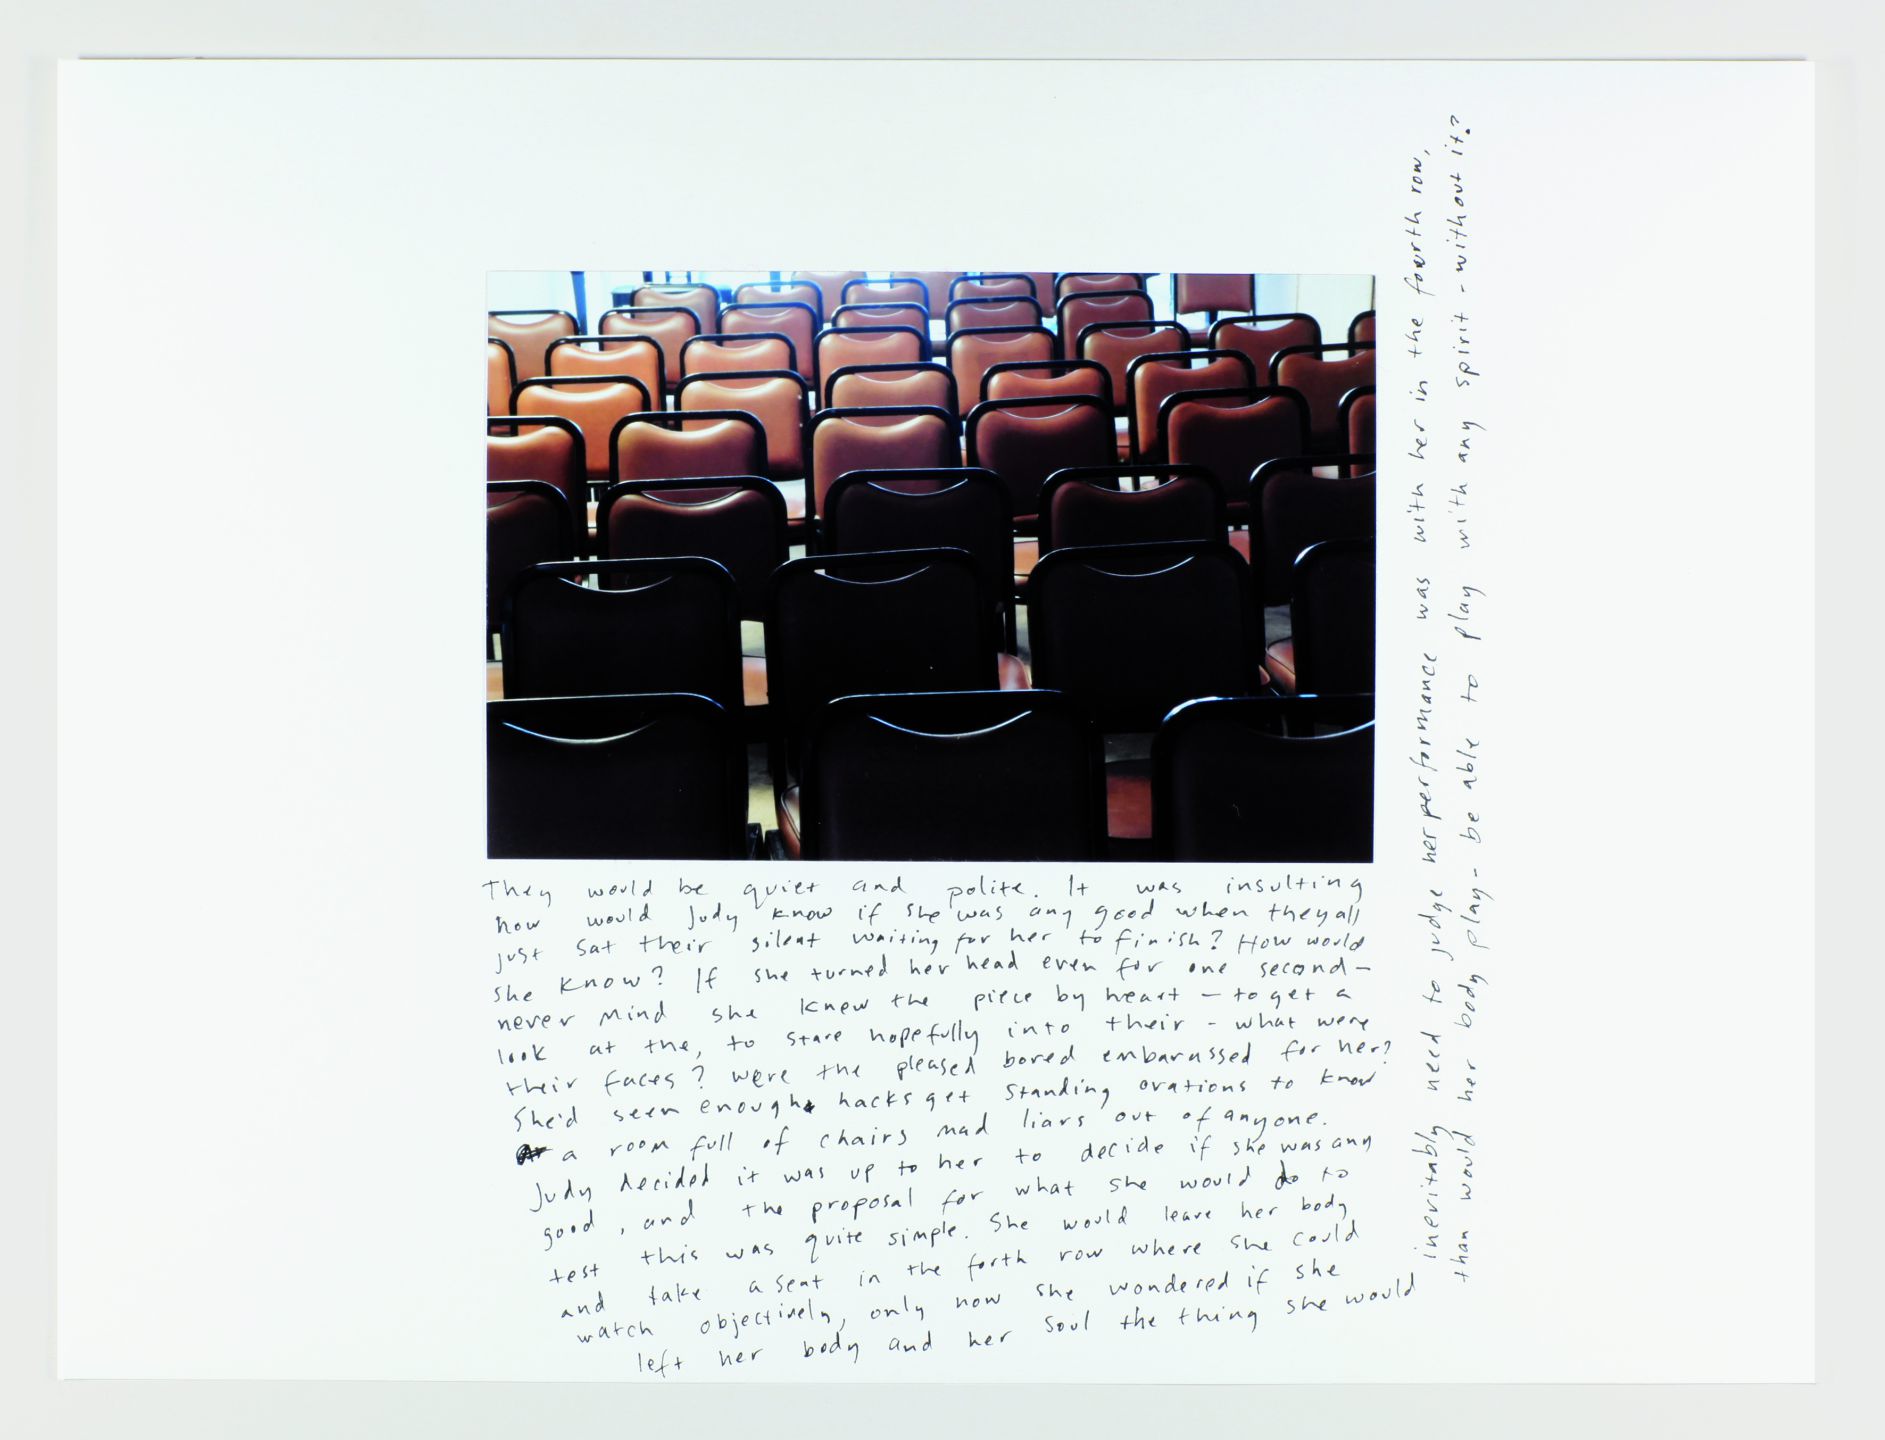 They would be quiet and polite. It was insulting
how would Judy know if she was any good when they all
just sat their silent waiting for her to finish? How would
she know? If she turned her head even for one second—
never mind she knew the piece by heart — to get a
look at the, to stare hopefully into their - what were
their faces? were the pleased bored embarassed for her?
She'd seen enough hacks get standing ovations to know
a room full of chairs mad liars out of anyone.
Judy decided it was up to her to decide if she was any
good, and the proposal for what she would do to
test this was quite simple. She would leave her body
and take a seat in the forth row where she could
watch objectively, only now she wondered if she
left her body and her soul the thing she would
inevitably need to judge her performance was with her in the fourth row,
than would her body play - be able to play with any spirit - without it?